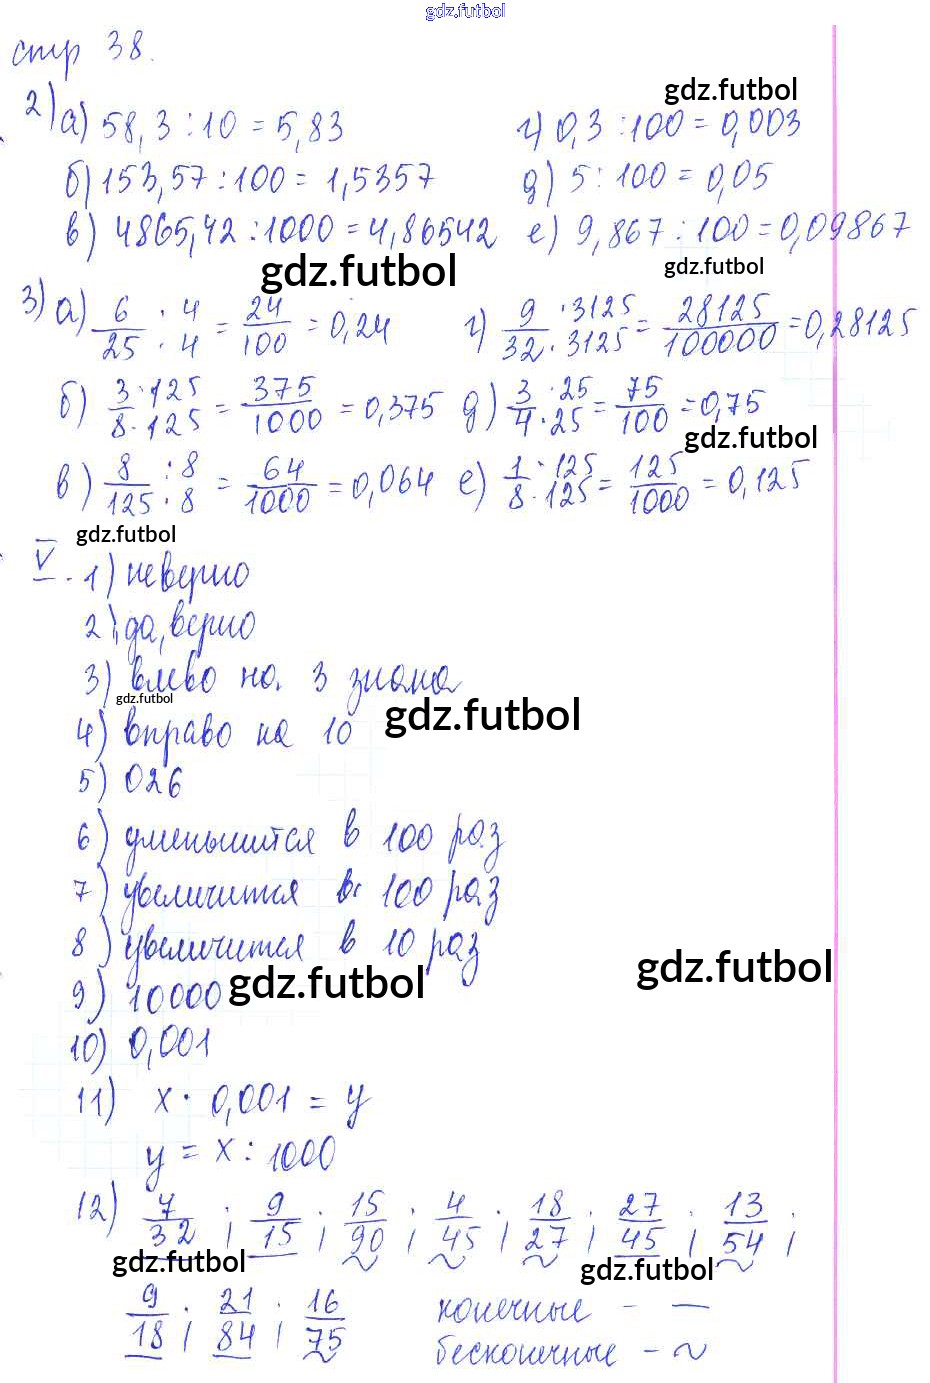 gdz.futbol
стр 38.
gdz.futbol
2) а) 58,3 : 10 = 5,83 г) 0,3 : 100 = 0,003
б) 153,57 : 100 = 1,5357 д) 5 : 100 = 0,05
в) 4865,42 : 1000 = 4,86542 е) 9,867 : 100 = 0,09867
gdz.futbol gdz.futbol
3) а) 6/25 · 4/4 = 24/100 = 0,24 г) 9/32 · 3125/3125 = 28125/100000 = 0,28125
б) 3/8 · 125/125 = 375/1000 = 0,375 д) 3/4 · 25/25 = 75/100 = 0,75
gdz.futbol
в) 8/125 · 8/8 = 64/1000 = 0,064 е) 1/8 · 125/125 = 125/1000 = 0,125
gdz.futbol
V. 1) неверно
2) да, верно
3) влево на 3 знака
gdz.futbol
4) вправо на 10 gdz.futbol
5) 026
6) уменьшится в 100 раз
7) увеличится в 100 раз
8) увеличится в 10 раз
9) 10000 gdz.futbol gdz.futbol
10) 0,001
11) x · 0,001 = y
y = x : 1000
12) 7/32 ; 9/15 ; 15/90 ; 4/45 ; 18/27 ; 27/45 ; 13/54 ;
gdz.futbol gdz.futbol
9/18 ; 21/84 ; 16/75 конечные - —
бесконечные - ~